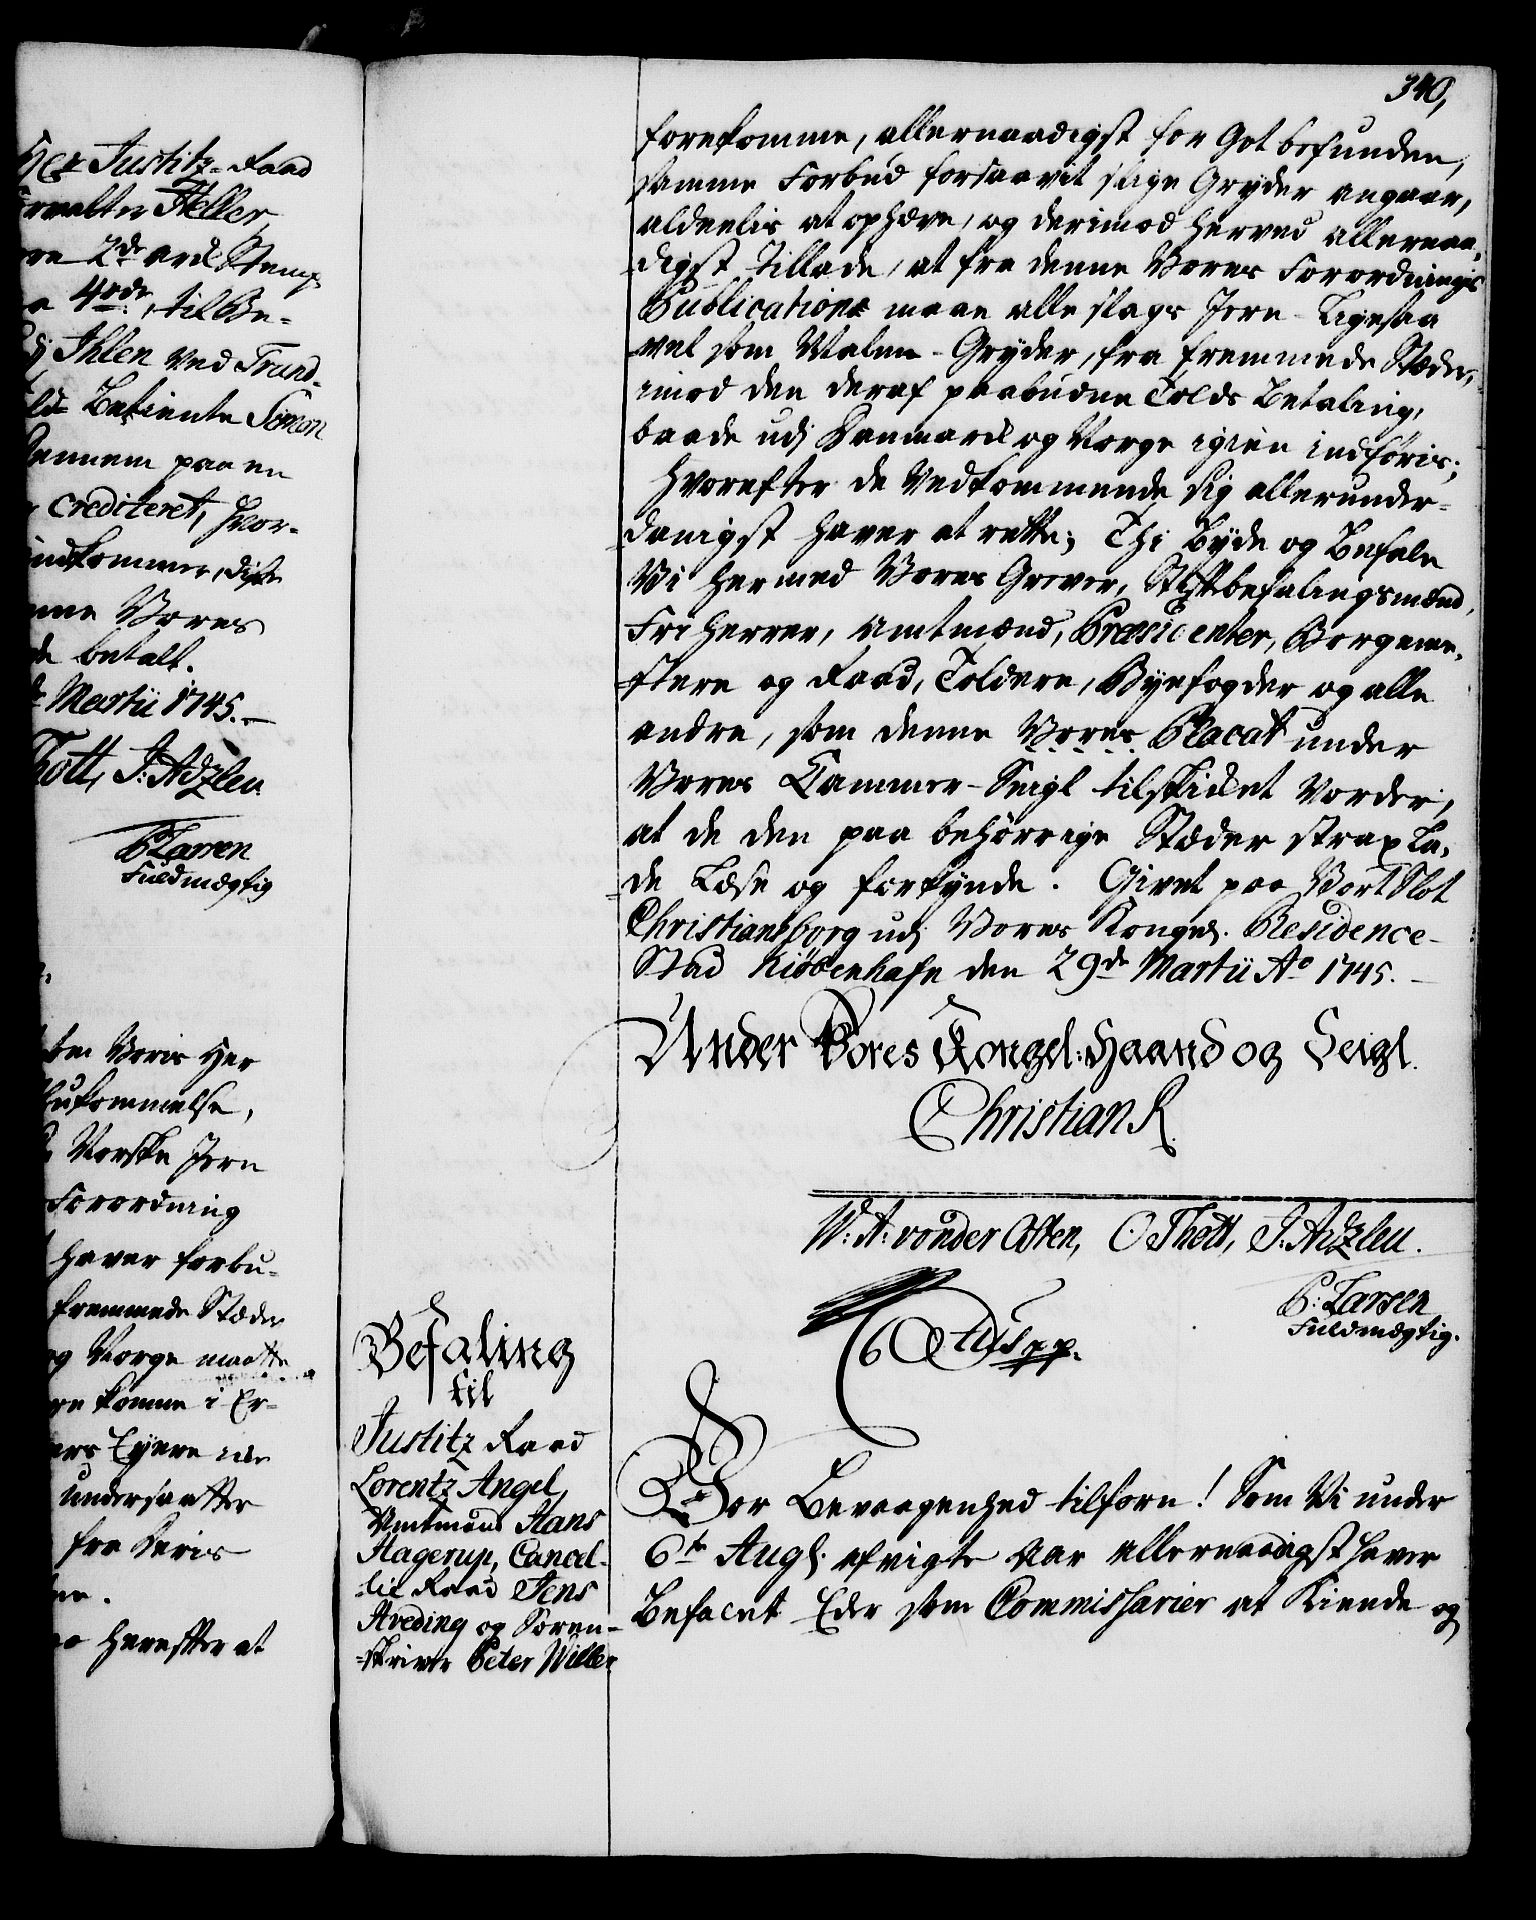 Her Justitz-Raad
Heller
2de
4rde, til Be-
Ihlen ved Trond-
Betiente Simon
paa en
crediteret, hvor-
indkommer, disse
Vores
betalt.
Martii 1745.
Thott, J: Adzleu
C Larsen
Fuldmægtig
Voris Her
kommelse,
Norske Jern
Forordning
haver forbu-
fremmede Stæder
og Norge maatte
komme i Er-
Eyere
undersaatter
fra
herefter at
340,
forekomme, allernaadigst for Got befunden,
samme Forbud forsaavit slige Gryder angaar,
aldeelis at ophæve, og derimod herved allernaa-
-digst Tillade, at fra denne Vores Forordnings
Publication maae alle slags Jern- Ligesaa
vel som Malm-Gryder, fra fremmede Stæder,
imod den deraf paabudne Tolds Betaling,
baade udj Danmark og Norge igien indføris;
Hvorefter de Vedkommende sig allerunder-
danigst haver at rette; Thi Byde og Befale
Vi hermed Vores Grever, Stiftbefalingsmænd,
Friherrer, Amtmænd, Præsidenter, Borgeme-
-stere og Raad, Toldere, Byefogder og alle
andre, som denne Vores Placat under
Vores Cammer-Seigl tilskicket vorder,
at de den paa behørrige Stæder strax La-
-de Læse og forkynde. Givet paa Vort Slot
Christiansborg udj Vores Kongel. Residence-
Stad Kiøbenhafn den 29de Martii Ao 1745.
Under Vores Kongel: Haand og Seigl.
Christian R.
W: A: von der Osten, O Thott, J: Adzleu.
C: Larsen
Fuldmægtig.
Befaling
til
Justitz Raad
Lorentz Angel,
Amtmand Hans
Hagerup, Cancel-
lie Raad Jens
Hveding og Soren-
-skriver Peter Wille
Vor Bevaagenhed tilforn! Som Vi under
6te Aug. afvigte Aar Allernaadigst haver
Befalet Eder som Commissarier at Kiende og